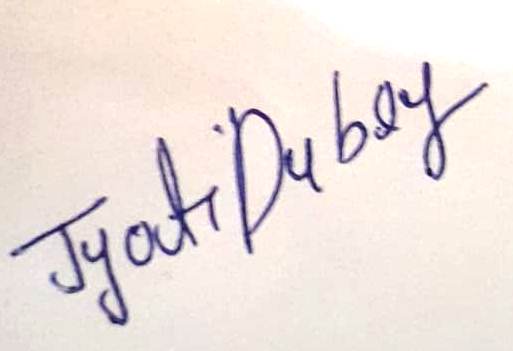 Jyoti Dubey